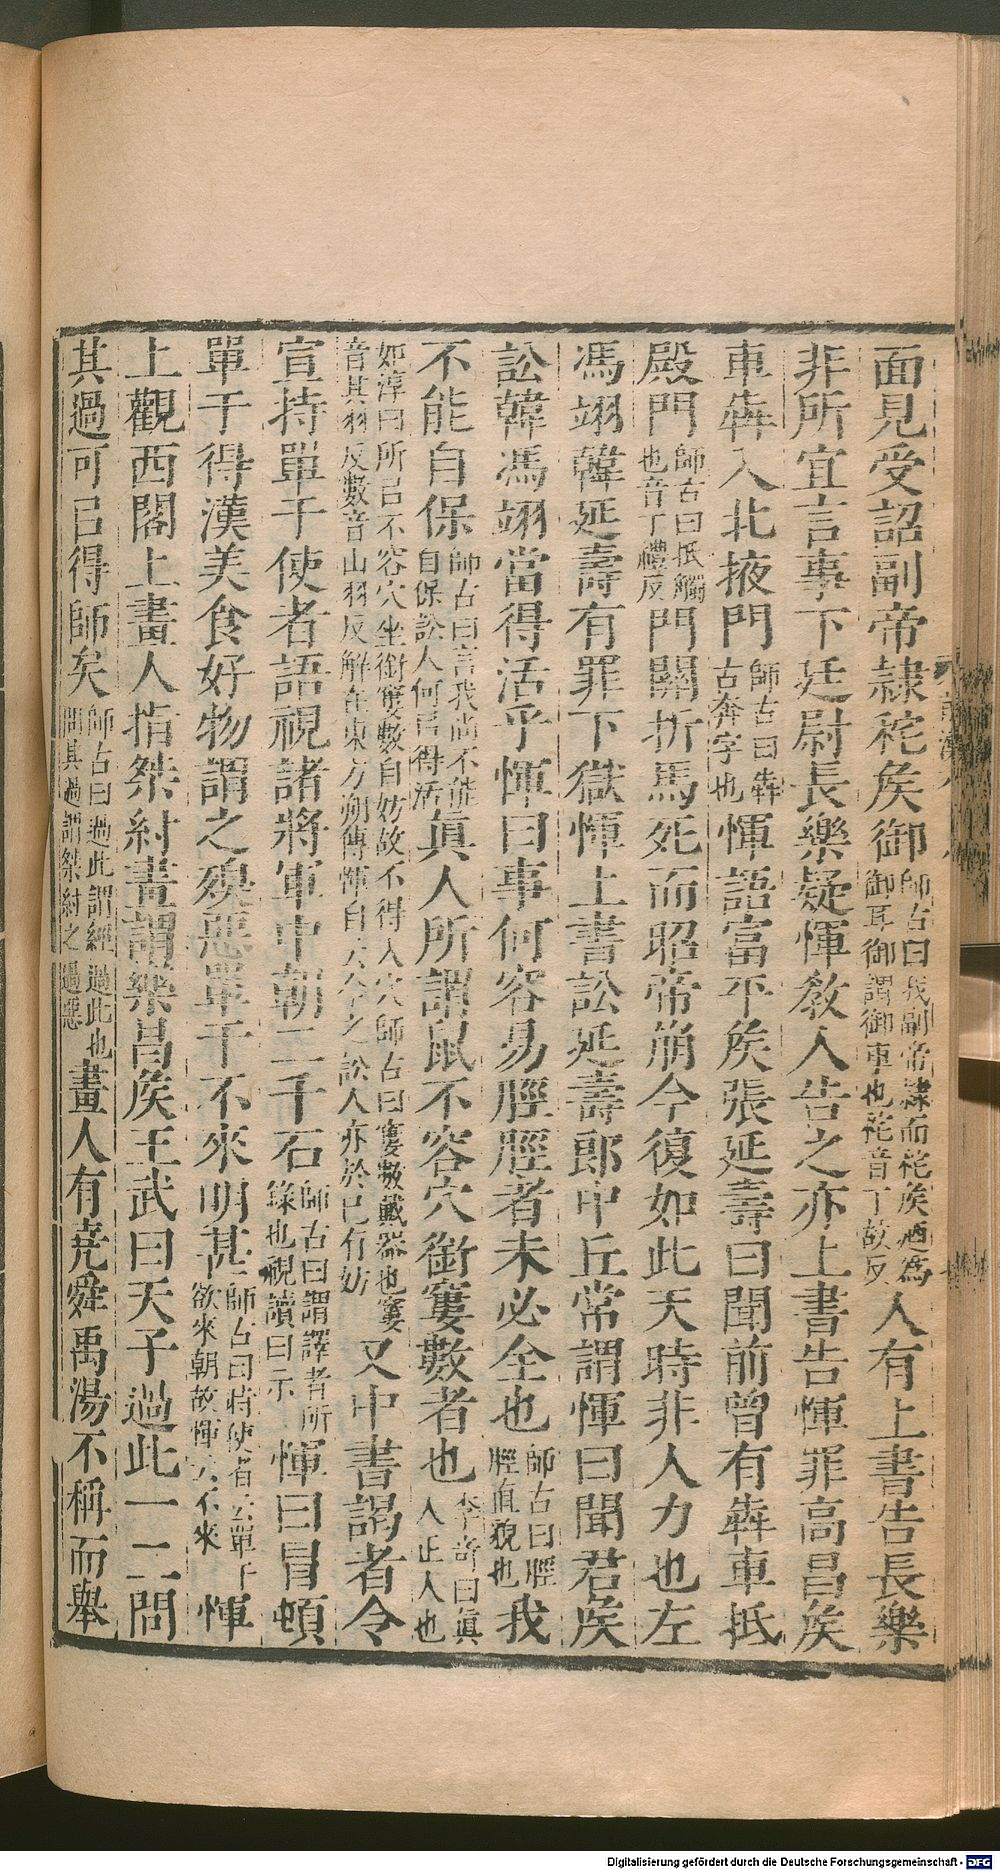 面見受詔副帝隷秺矦御師古曰我副帝隷而秺矦迺爲御耳御謂御車也秺音丁故反人有上書告長樂
非所宜言事下廷尉長樂疑惲敎人告之亦上書告惲罪高昌矦
車犇入北掖門師古曰犇古奔字也惲語富平矦張延壽曰聞前曾有犇車抵
殿門師古曰抵觸也音丁禮反門關折馬死而昭帝崩今復如此天時非人力也左
馮翊韓延壽有罪下獄惲上書訟延壽郎中丘常謂惲曰聞君矦
訟韓馮翊當得活乎惲曰事何容易脛脛者未必全也師古曰脛脛直貌也我
不能自保師古曰言我尚不能自保訟人何㠯得活眞人所謂鼠不容穴銜窶數者也李奇曰眞人正人也
如淳曰所㠯不容穴坐銜窶數自妨故不得入穴師古曰窶數戴器也窶音其羽反數音山羽反解在東方朔傳惲自云今之訟人亦於已有妨又中書謁者令
宣持單于使者語視諸將軍中朝二千石師古曰謂譯者所錄也視讀曰示惲曰冒頓
單于得漢美食好物謂之殠惡單于不來明甚師古曰時使者云單于欲來朝故惲云不來惲
上觀西閣上畫人指桀紂畫謂樂昌矦王武曰天子過此一二問
其過可㠯得師矣師古曰過此謂經過此也問其過謂桀紂之過惡畫人有堯舜禹湯不稱而舉
Digitalisierung gefördert durch die Deutsche Forschungsgemeinschaft - DFG